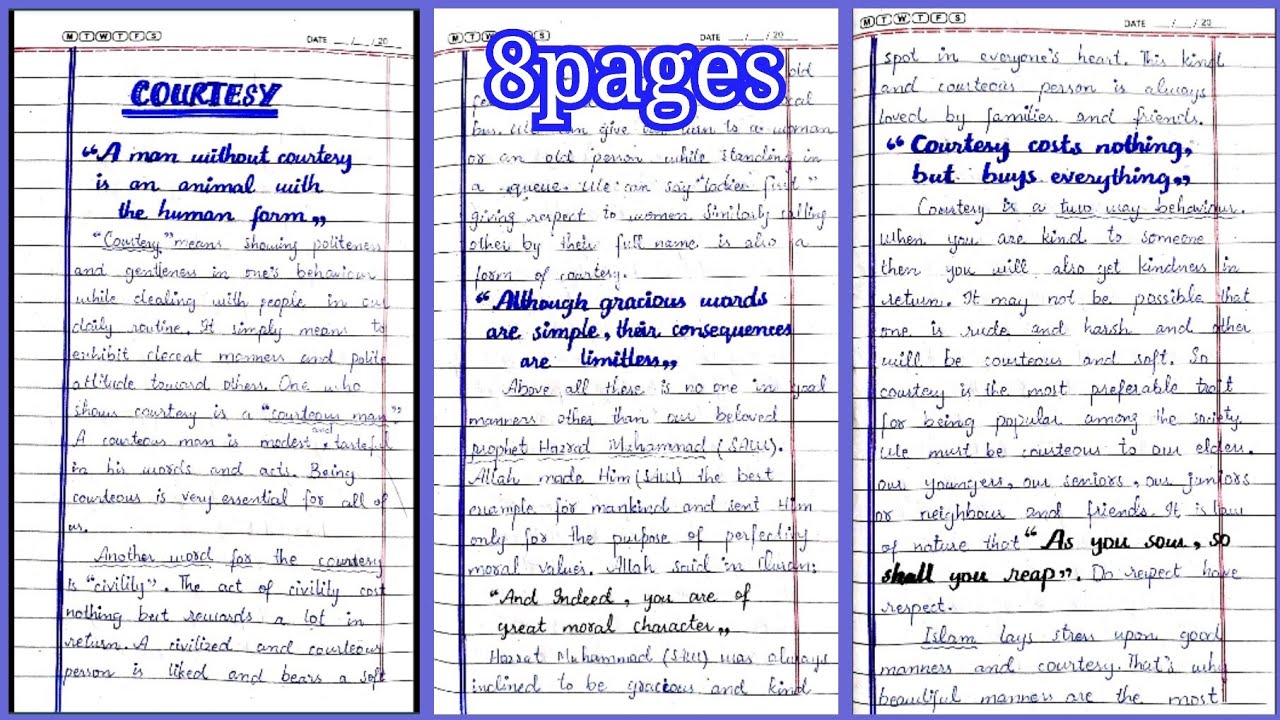 M T W T F S
DATE __/__/20__
COURTESY
“A man without courtesy
is an animal with
the human form„
“Courtesy” means showing politeness
and gentleness in one's behaviour
while dealing with people in our
daily routine. It simply means to
exhibit decent manners and polite
attitude toward others. One who
shows courtesy is a “courteous man”
A courteous man is modest and tasteful
in his words and acts. Being
courteous is very essential for all of
us.
Another word for the courtesy
is “civility”. The act of civility cost
nothing but rewards a lot in
return. A civilized and courteous
person is liked and bears a soft
M T W T F S
DATE __/__/20__
8pages
old
bus. We can give our turn to a woman
or an old person while standing in
a queue. We can say “ladies first”
giving respect to women Similarly calling
other by their full name is also a
form of courtesy.
“Although gracious words
are simple, their consequences
are limitless„
Above all there is no one in goal
manners other than our beloved
prophet Hazrad Muhammad (SAW).
Allah made Him (SAW) the best
example for mankind and sent Him
only for the purpose of perfecting
moral values. Allah said in Quran:
“And Indeed, you are of
great moral character„
Hazrat Muhammad (SAW) was always
inclined to be gracious and kind
M T W T F S
DATE __/__/20__
spot in everyone's heart. This kind
and courteous person is always
loved by families and friends.
“Courtesy costs nothing,
but buys everything„
Courtesy is a two way behaviour.
When you are kind to someone
then you will also get kindness in
return. It may not be possible that
one is rude and harsh and other
will be courteous and soft. So
courtesy is the most preferable trait
for being popular among the society.
We must be courteous to our elders.
our youngers, our seniors, our juniors
or neighbous and friends. It is law
of nature that “As you sow, so
shall you reap”. Do respect have
respect.
Islam lays stress upon good
manners and courtesy. That's why
beautiful manners are the most